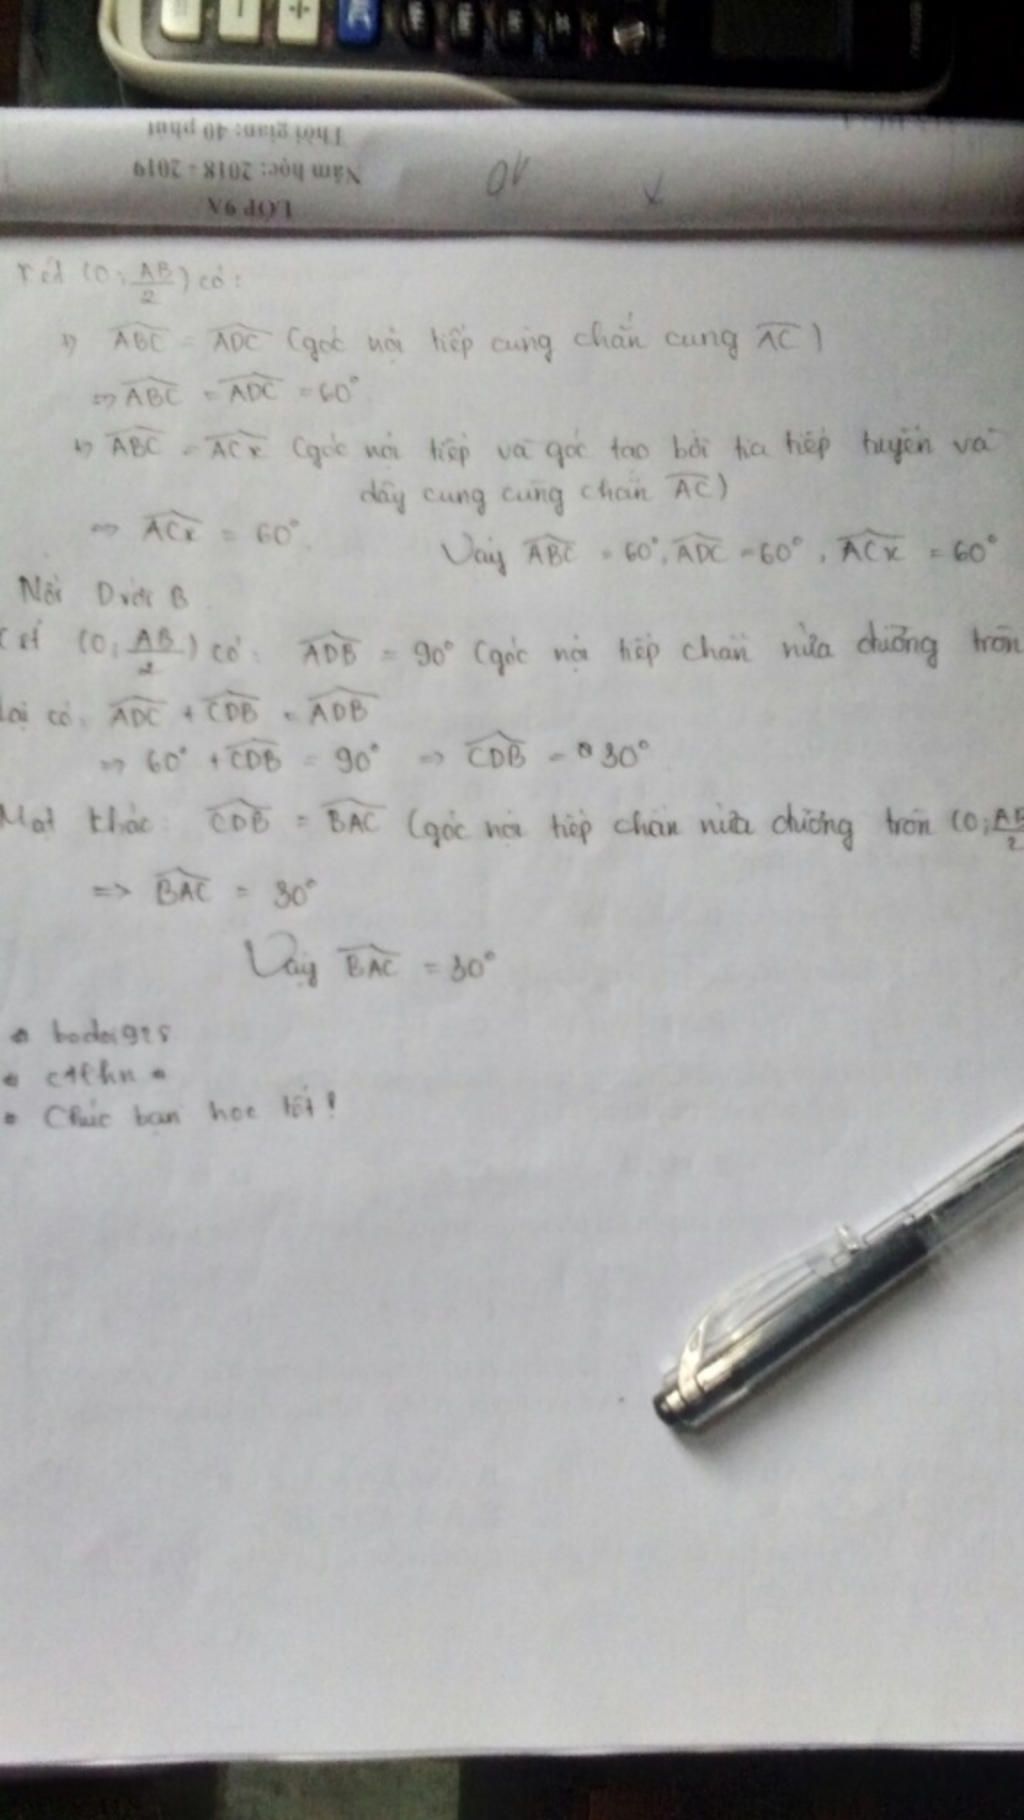 Thời gian: 40 phút
Năm học: 2018 - 2019
LỚP 9A
Xét (O; AB/2) có:
+) ABC = ADC (góc nội tiếp cùng chắn cung AC)
=> ABC = ADC = 60°
+) ABC = ACx (góc nội tiếp và góc tạo bởi tia tiếp tuyến và
dây cung cùng chắn AC)
=> ACx = 60°.
Vậy ABC = 60°, ADC = 60°, ACx = 60°
Nối D với B
Xét (O; AB/2) có: ADB = 90° (góc nội tiếp chắn nửa đường tròn
Lại có: ADC + CDB = ADB
=> 60° + CDB = 90° => CDB = 30°
Mặt khác: CDB = BAC (góc nội tiếp chắn nửa đường tròn (O; AB/2
=> BAC = 30°
Vậy BAC = 30°
Chúc bạn học tốt!